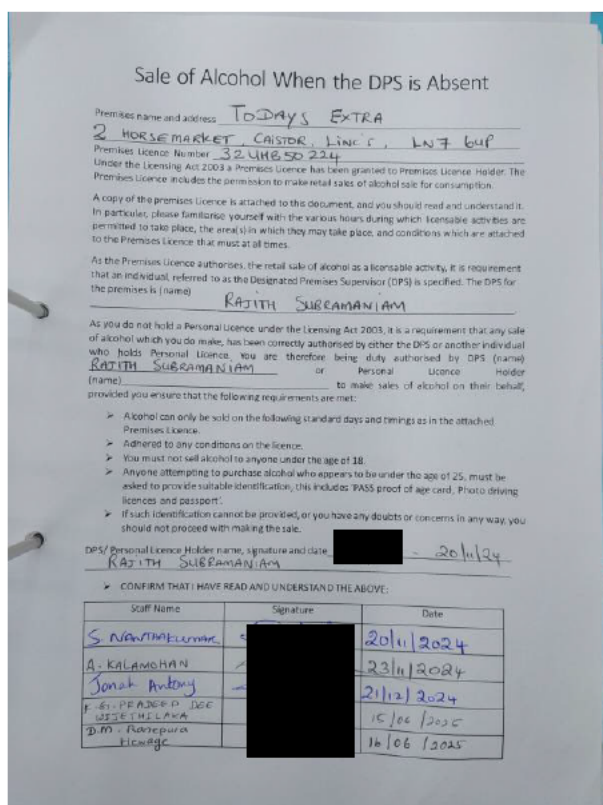 Sale of Alcohol When the DPS is Absent
Premises name and address TODAYS EXTRA
2 HORSEMARKET, CAISTOR, LINC'S, LN7 6UP
Premises Licence Number 32UHB50224
Under the Licensing Act 2003 a Premises Licence has been granted to Premises Licence Holder. The
Premises Licence includes the permission to make retail sales of alcohol sale for consumption.
A copy of the premises Licence is attached to this document, and you should read and understand it.
In particular, please familiarise yourself with the various hours during which licensable activities are
permitted to take place, the area(s) in which they may take place, and conditions which are attached
to the Premises Licence that must at all times.
As the Premises Licence authorises, the retail sale of alcohol as a licensable activity, it is requirement
that an individual, referred to as the Designated Premises Supervisor (DPS) is specified. The DPS for
the premises is (name)
RAJITH SUBRAMANIAM
As you do not hold a Personal Licence under the Licensing Act 2003, it is a requirement that any sale
of alcohol which you do make, has been correctly authorised by either the DPS or another individual
who holds Personal Licence. You are therefore being duty authorised by DPS (name)
RAJITH SUBRAMANIAM or Personal Licence Holder
(name) to make sales of alcohol on their behalf,
provided you ensure that the following requirements are met:
➢ Alcohol can only be sold on the following standard days and timings as in the attached
Premises Licence.
➢ Adhered to any conditions on the licence.
➢ You must not sell alcohol to anyone under the age of 18.
➢ Anyone attempting to purchase alcohol who appears to be under the age of 25, must be
asked to provide suitable identification, this includes 'PASS proof of age card, Photo driving
licences and passport'.
➢ If such identification cannot be provided, or you have any doubts or concerns in any way, you
should not proceed with making the sale.
DPS/ Personal Licence Holder name, signature and date - 20/11/24
RAJITH SUBRAMANIAM
➢ CONFIRM THAT I HAVE READ AND UNDERSTAND THE ABOVE:
Staff Name Signature Date
S. NANTHAKUMAR 20/11/2024
A. KALAMOHAN 23/11/2024
Jonat Antony 21/12/2024
PRADEEP DEE
WIJETHILAKA 15/06/2025
D.M. Ranepura
Hewage 16/06/2025